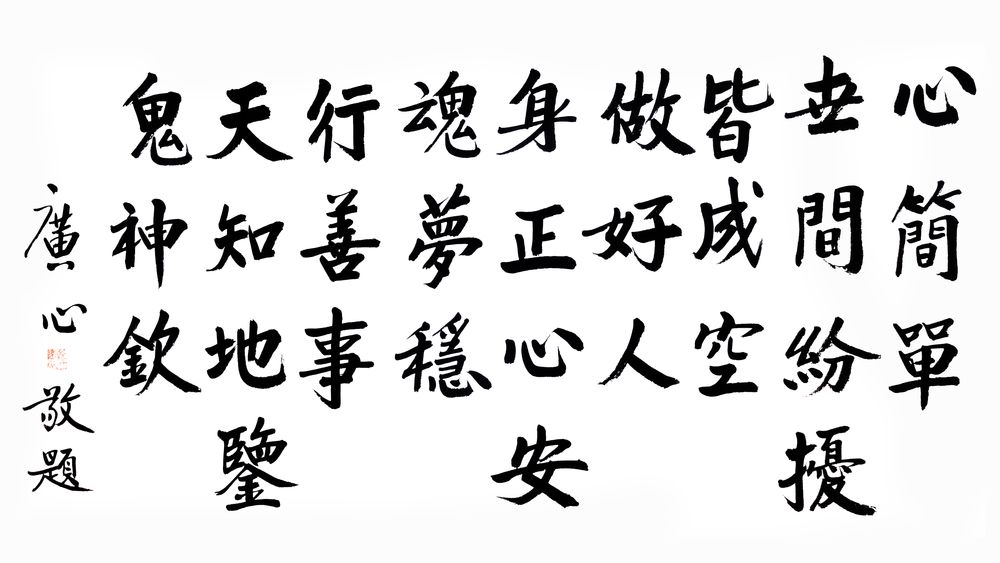 心簡單
世間紛擾
皆成空
做好人
身正心安
魂夢穩
行善事
天知地鑒
鬼神欽
廣心敬題